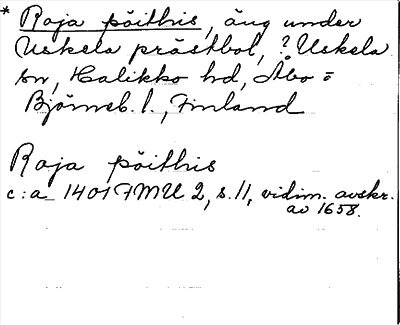 * Raja pöithis, äng under
Uskela prästbol, ? Uskela
sn, Halikko hd, Åbo =
Björneb. l., Finland
Raja pöithis
c:a 1401 FMU 2, s. 11, vidim. avskr.
av 1658.